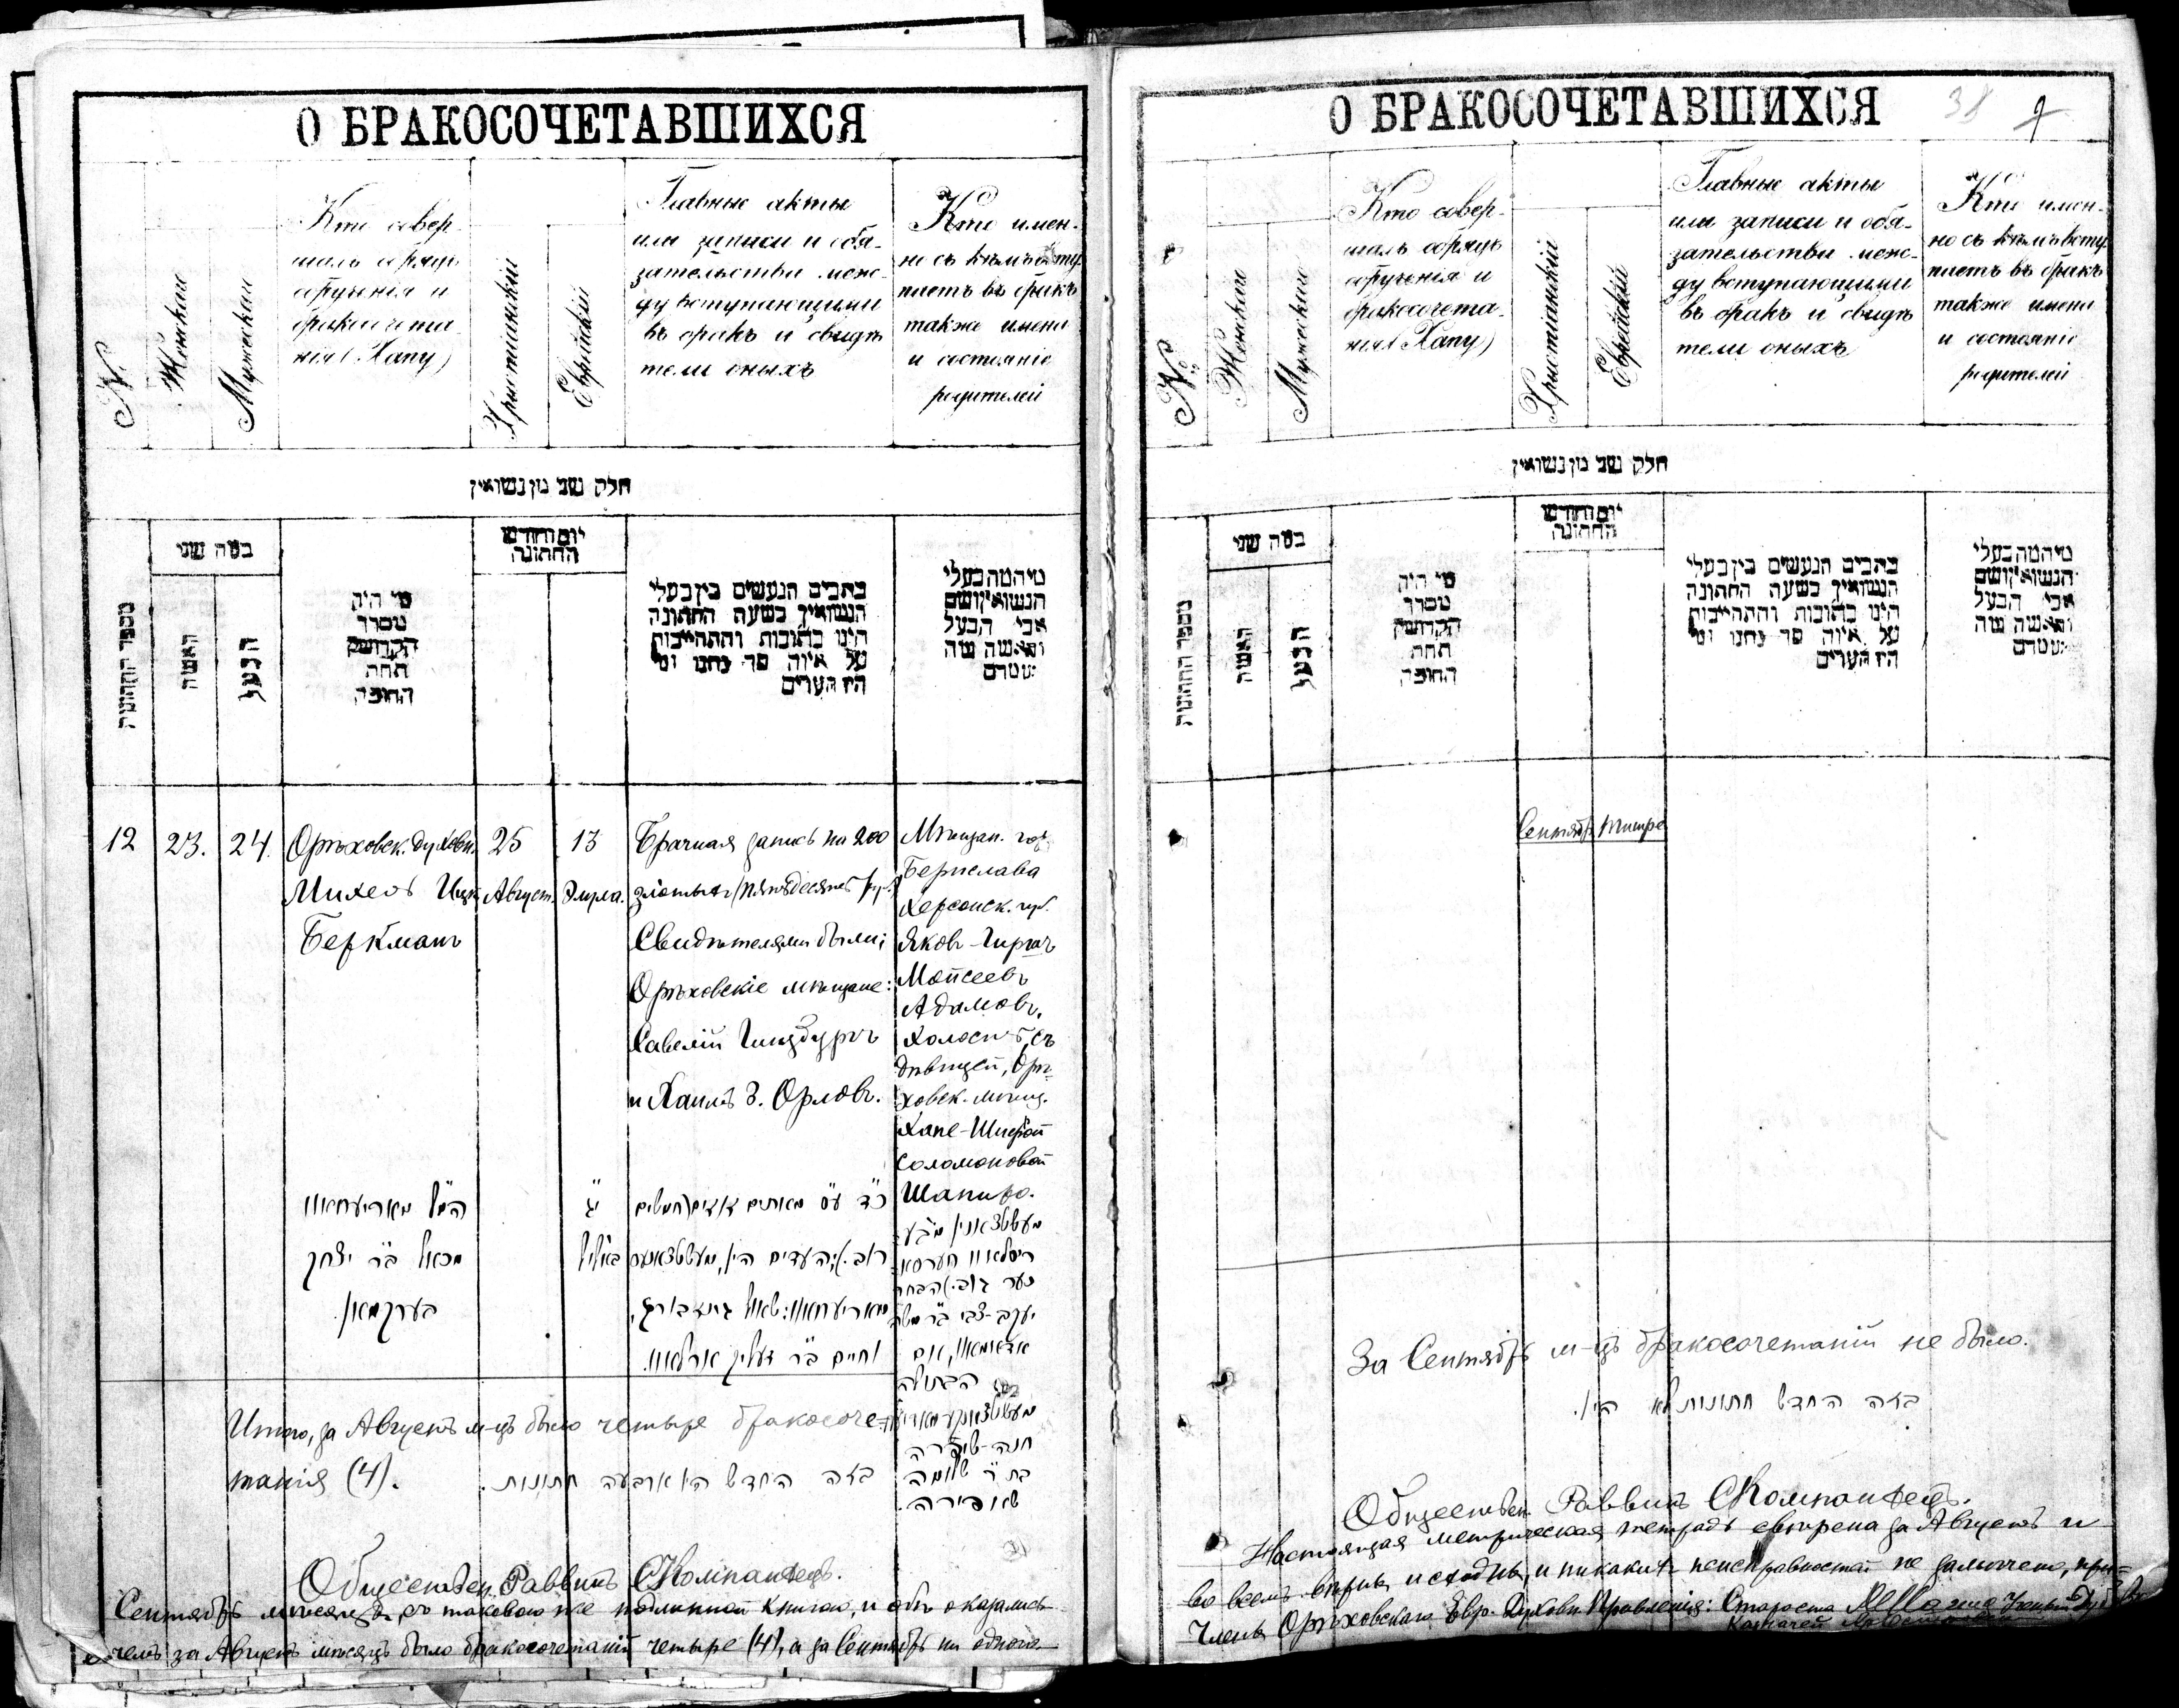 О БРАКОСОЧЕТАВШИХСЯ
№
Женскаго
Мужескаго
Кто совер-
шалъ обрядъ
обрученія и
бракосочета-
нія (Хапу)
Христіанскій
Еврейскій
Главные акты
или записи и обя-
зательства меж-
ду вступающими
въ бракъ и свидѣ
тели оныхъ
Кто имен-
но съ кѣмъ всту-
паетъ въ бракъ
также имена
и состояніе
родителей
חלק שני מן נשואין
מספר החתונות
כמה שני
האשה
הבעל
מי היה
מסדר
הקדושין
תחת
החופה
יום וחודש
החתונה
כתבים הנעשים בין בעלי
הנשואין בשעה החתונה
היינו כתובות והתחייבות
על איזה סך נתנו ומי
היו העדים
מי המה בעלי
הנשואין ושם
אבי הבעל
והאשה מה
מעמדם
12
23.
24.
Орѣховск. духовн.
Михель Ицк.
Беркманъ
25
Август.
13
Элула.
Брачная запись на 200
злотыхъ (пятьдесятъ руб.)
Свидѣтелями были;
Орѣховскіе мѣщане:
Савелій Гинзбургъ
и Хаимъ З. Орловъ.
Мѣщан. гор.
Берислава
Херсонск. губ.
Яковъ-Гиршъ
Моисеевъ
Адамовъ,
холостъ, съ
дѣвицей, Орѣ-
ховск. мѣщ.
Хане-Шифрой
Соломоновой
Шапиро.
מכאל ב״ר יצחק
בערקמאן.
י״ג
באלול
כ״ד ע״ס מאתים זהובים (חמשים
רוב.) והעדים היו, מעשטצאנעס
מאריעחאוו: שאול גינצבורג,
וחיים ב״ר זעליק ארלאוו.
יעקב-צבי ב״ר משה
אדאמאוו, עם
הבתולה
חנה-שיפרה
בת ר׳ שלמה
שאפירה.
Итого, за Августъ м-цъ было четыре бракосоче-
танія (4).
בזה החדש היו ארבעה חתונות.
Обществен. Раввинъ СКомпанѣецъ.
Сентябрь мѣсяцы, съ таковою же подлинной книгою, и обѣ оказались
чемъ за Августъ мѣсяцъ было бракосочетаній четыре (4), а за Сентябрь ни одного
О БРАКОСОЧЕТАВШИХСЯ
38
№
Женскаго
Мужескаго
Кто совер-
шалъ обрядъ
обрученія и
бракосочета-
нія (Хапу)
Христіанскій
Еврейскій
Главные акты
или записи и обя-
зательства меж-
ду вступающими
въ бракъ и свидѣ
тели оныхъ
Кто имен-
но съ кѣмъ всту-
паетъ въ бракъ
также имена
и состояніе
родителей
חלק שני מן נשואין
מספר החתונות
כמה שני
האשה
הבעל
מי היה
מסדר
הקדושין
תחת
החופה
יום וחודש
החתונה
כתבים הנעשים בין בעלי
הנשואין בשעה החתונה
היינו כתובות והתחייבות
על איזה סך נתנו ומי
היו העדים
מי המה בעלי
הנשואין ושם
אבי הבעל
והאשה מה
מעמדם
Сентябр. Тишре
За Сентябрь м-цъ бракосочетаній не было.
בזה החדש חתונות לא היו.
Обществен. Раввинъ СКомпанѣецъ.
Настоящая метрическая тетрадь свѣрена за Августъ и
во всемъ вѣрны и сходны, и никакихъ неисправностей не замѣчено, при-
Члены Орѣховскаго Евр. Духовн. Правленія: Староста
Казначей